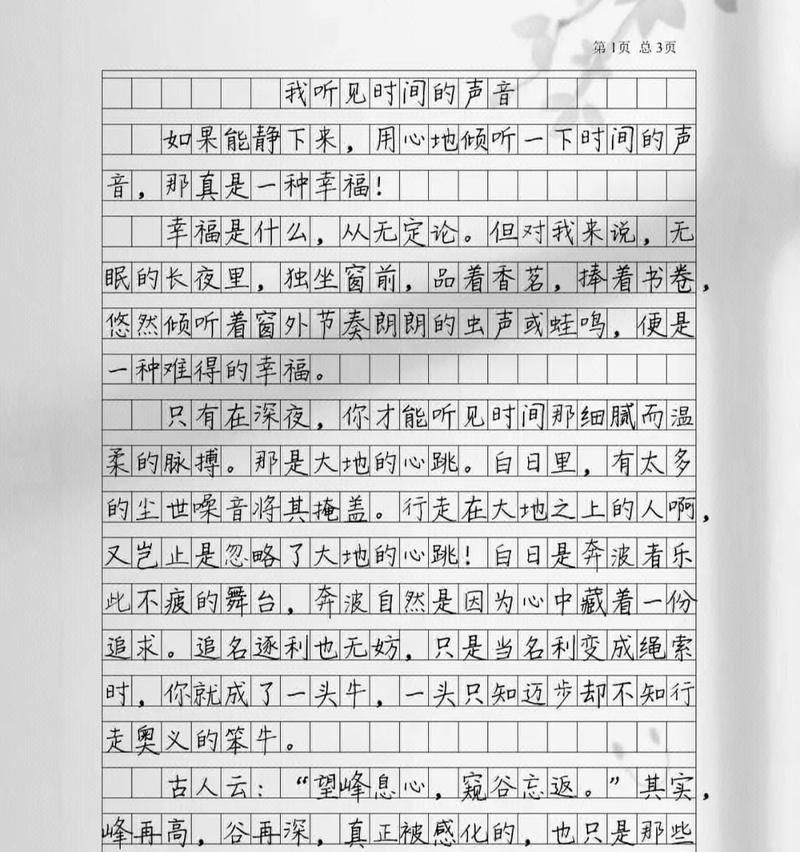 第1页 总3页
我听见时间的声音
如果能静下来，用心地倾听一下时间的声
音，那真是一种幸福！
幸福是什么，从无定论。但对我来说，无
眠的长夜里，独坐窗前，品着香茗，捧着书卷，
悠然倾听着窗外节奏朗朗的虫声或蛙鸣，便是
一种难得的幸福。
只有在深夜，你才能听见时间那细腻而温
柔的脉搏。那是大地的心跳。白日里，有太多
的尘世噪音将其掩盖。行走在大地之上的人啊，
又岂止是忽略了大地的心跳！白日是奔波者乐
此不疲的舞台，奔波自然是因为心中藏着一份
追求。追名逐利也无妨，只是当名利变成绳索
时，你就成了一头牛，一头只知迈步却不知行
走奥义的笨牛。
古人云：“望峰息心，窥谷忘返。”其实，
峰再高，谷再深，真正被感化的，也只是那些